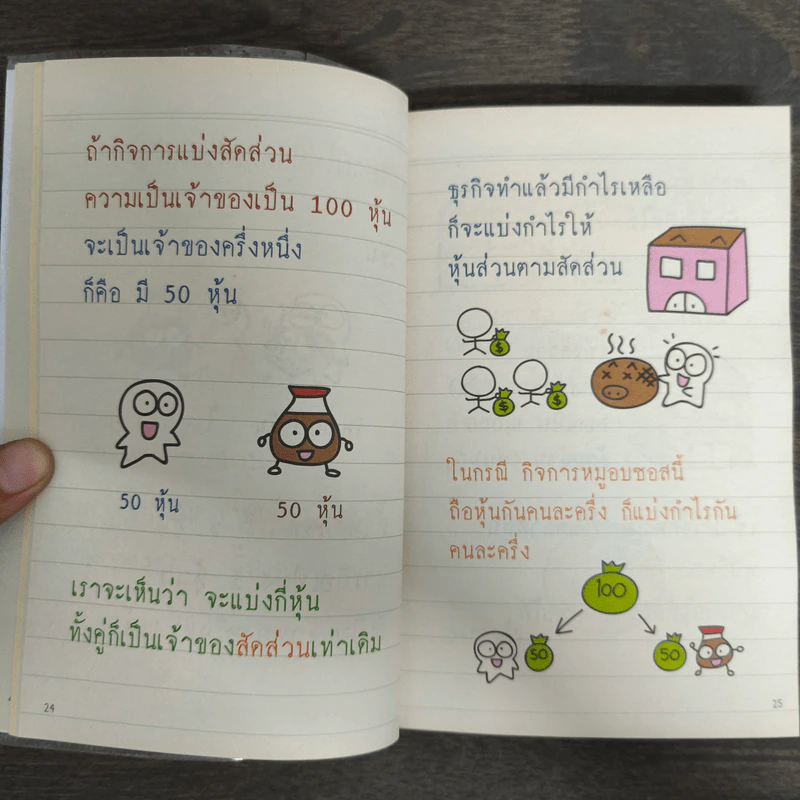 ถ้ากิจการแบ่งสัดส่วน
ความเป็นเจ้าของเป็น 100 หุ้น
จะเป็นเจ้าของครึ่งหนึ่ง
ก็คือ มี 50 หุ้น
50 หุ้น
50 หุ้น
เราจะเห็นว่า จะแบ่งกี่หุ้น
ทั้งคู่ก็เป็นเจ้าของสัดส่วนเท่าเดิม
24
ธุรกิจทำแล้วมีกำไรเหลือ
ก็จะแบ่งกำไรให้
หุ้นส่วนตามสัดส่วน
$
$
$
ในกรณี กิจการหมูอบซอสนี้
ถือหุ้นกันคนละครึ่ง ก็แบ่งกำไรกัน
คนละครึ่ง
100
50
50
25